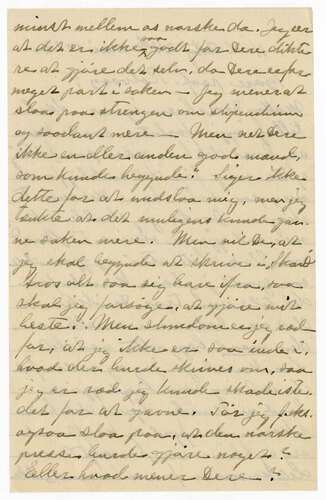 minst mellem os norske da. Jeg ser
at det er ikke saa godt for Dere dikte
re at gjöre det selv, da Dere er for
meget part i saken — Jeg mener at
slaa paa strengen om stipendium
og saadant mere — Men vet Dere
ikke en eller anden god mand,
som kunde begynde? Siger ikke
dette for at undslaa meg, men jeg
tænkte at det muligens kunde gav
ne saken mere. Men vil De, at
jeg skal begynde at skrive i Skand
tros alt saa sig bare ifra, saa
skal jeg forsöge, at gjöre mit
beste. Men stundom er jeg ræd
for, at jeg ikke er saa inde i,
hvad der burde skrives om, saa
jeg er ræd jeg kunde skade iste
det for at gavne. Tör jeg f.eks.
ogsaa slaa paa, at den norske
presse burde gjöre noget?
Eller hvad mener Dere?